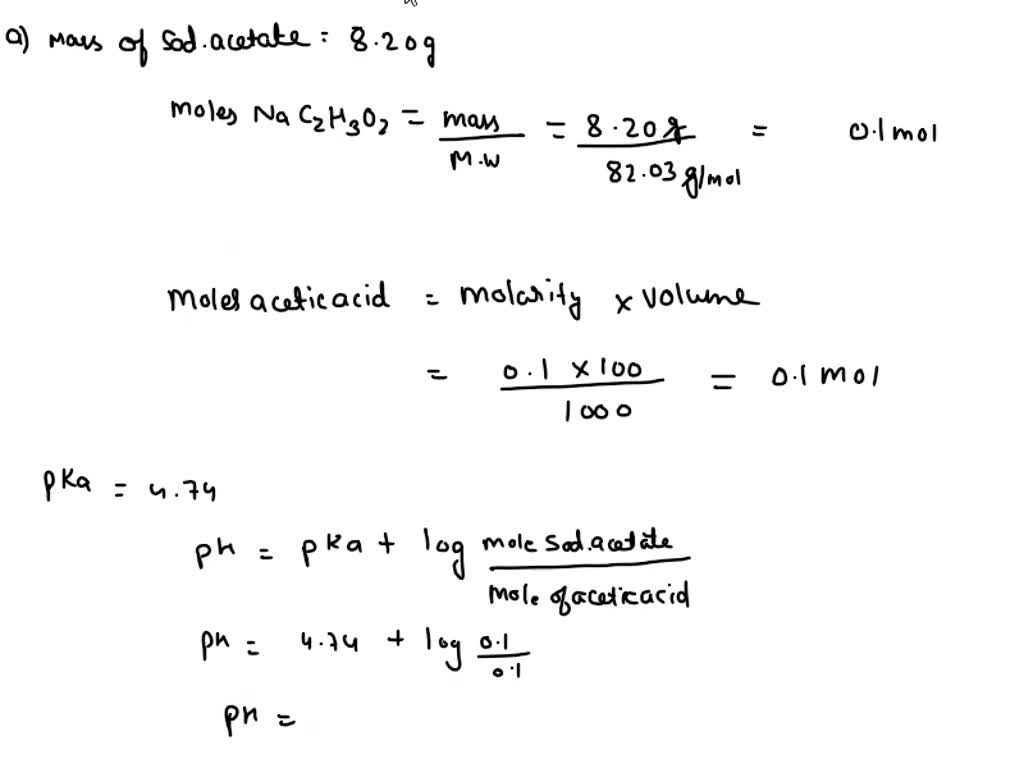 a) Mass of Sod.acetate = 8.20g
moles NaC₂H₃O₂ = mass / M.W = 8.20g / 82.03 g/mol = 0.1 mol
Moles acetic acid = molarity x volume
= 0.1 x 100 / 1000 = 0.1 mol
pKa = 4.74
pH = pKa + log mole Sod.acetate / mole of acetic acid
pH = 4.74 + log 0.1 / 0.1
pH =